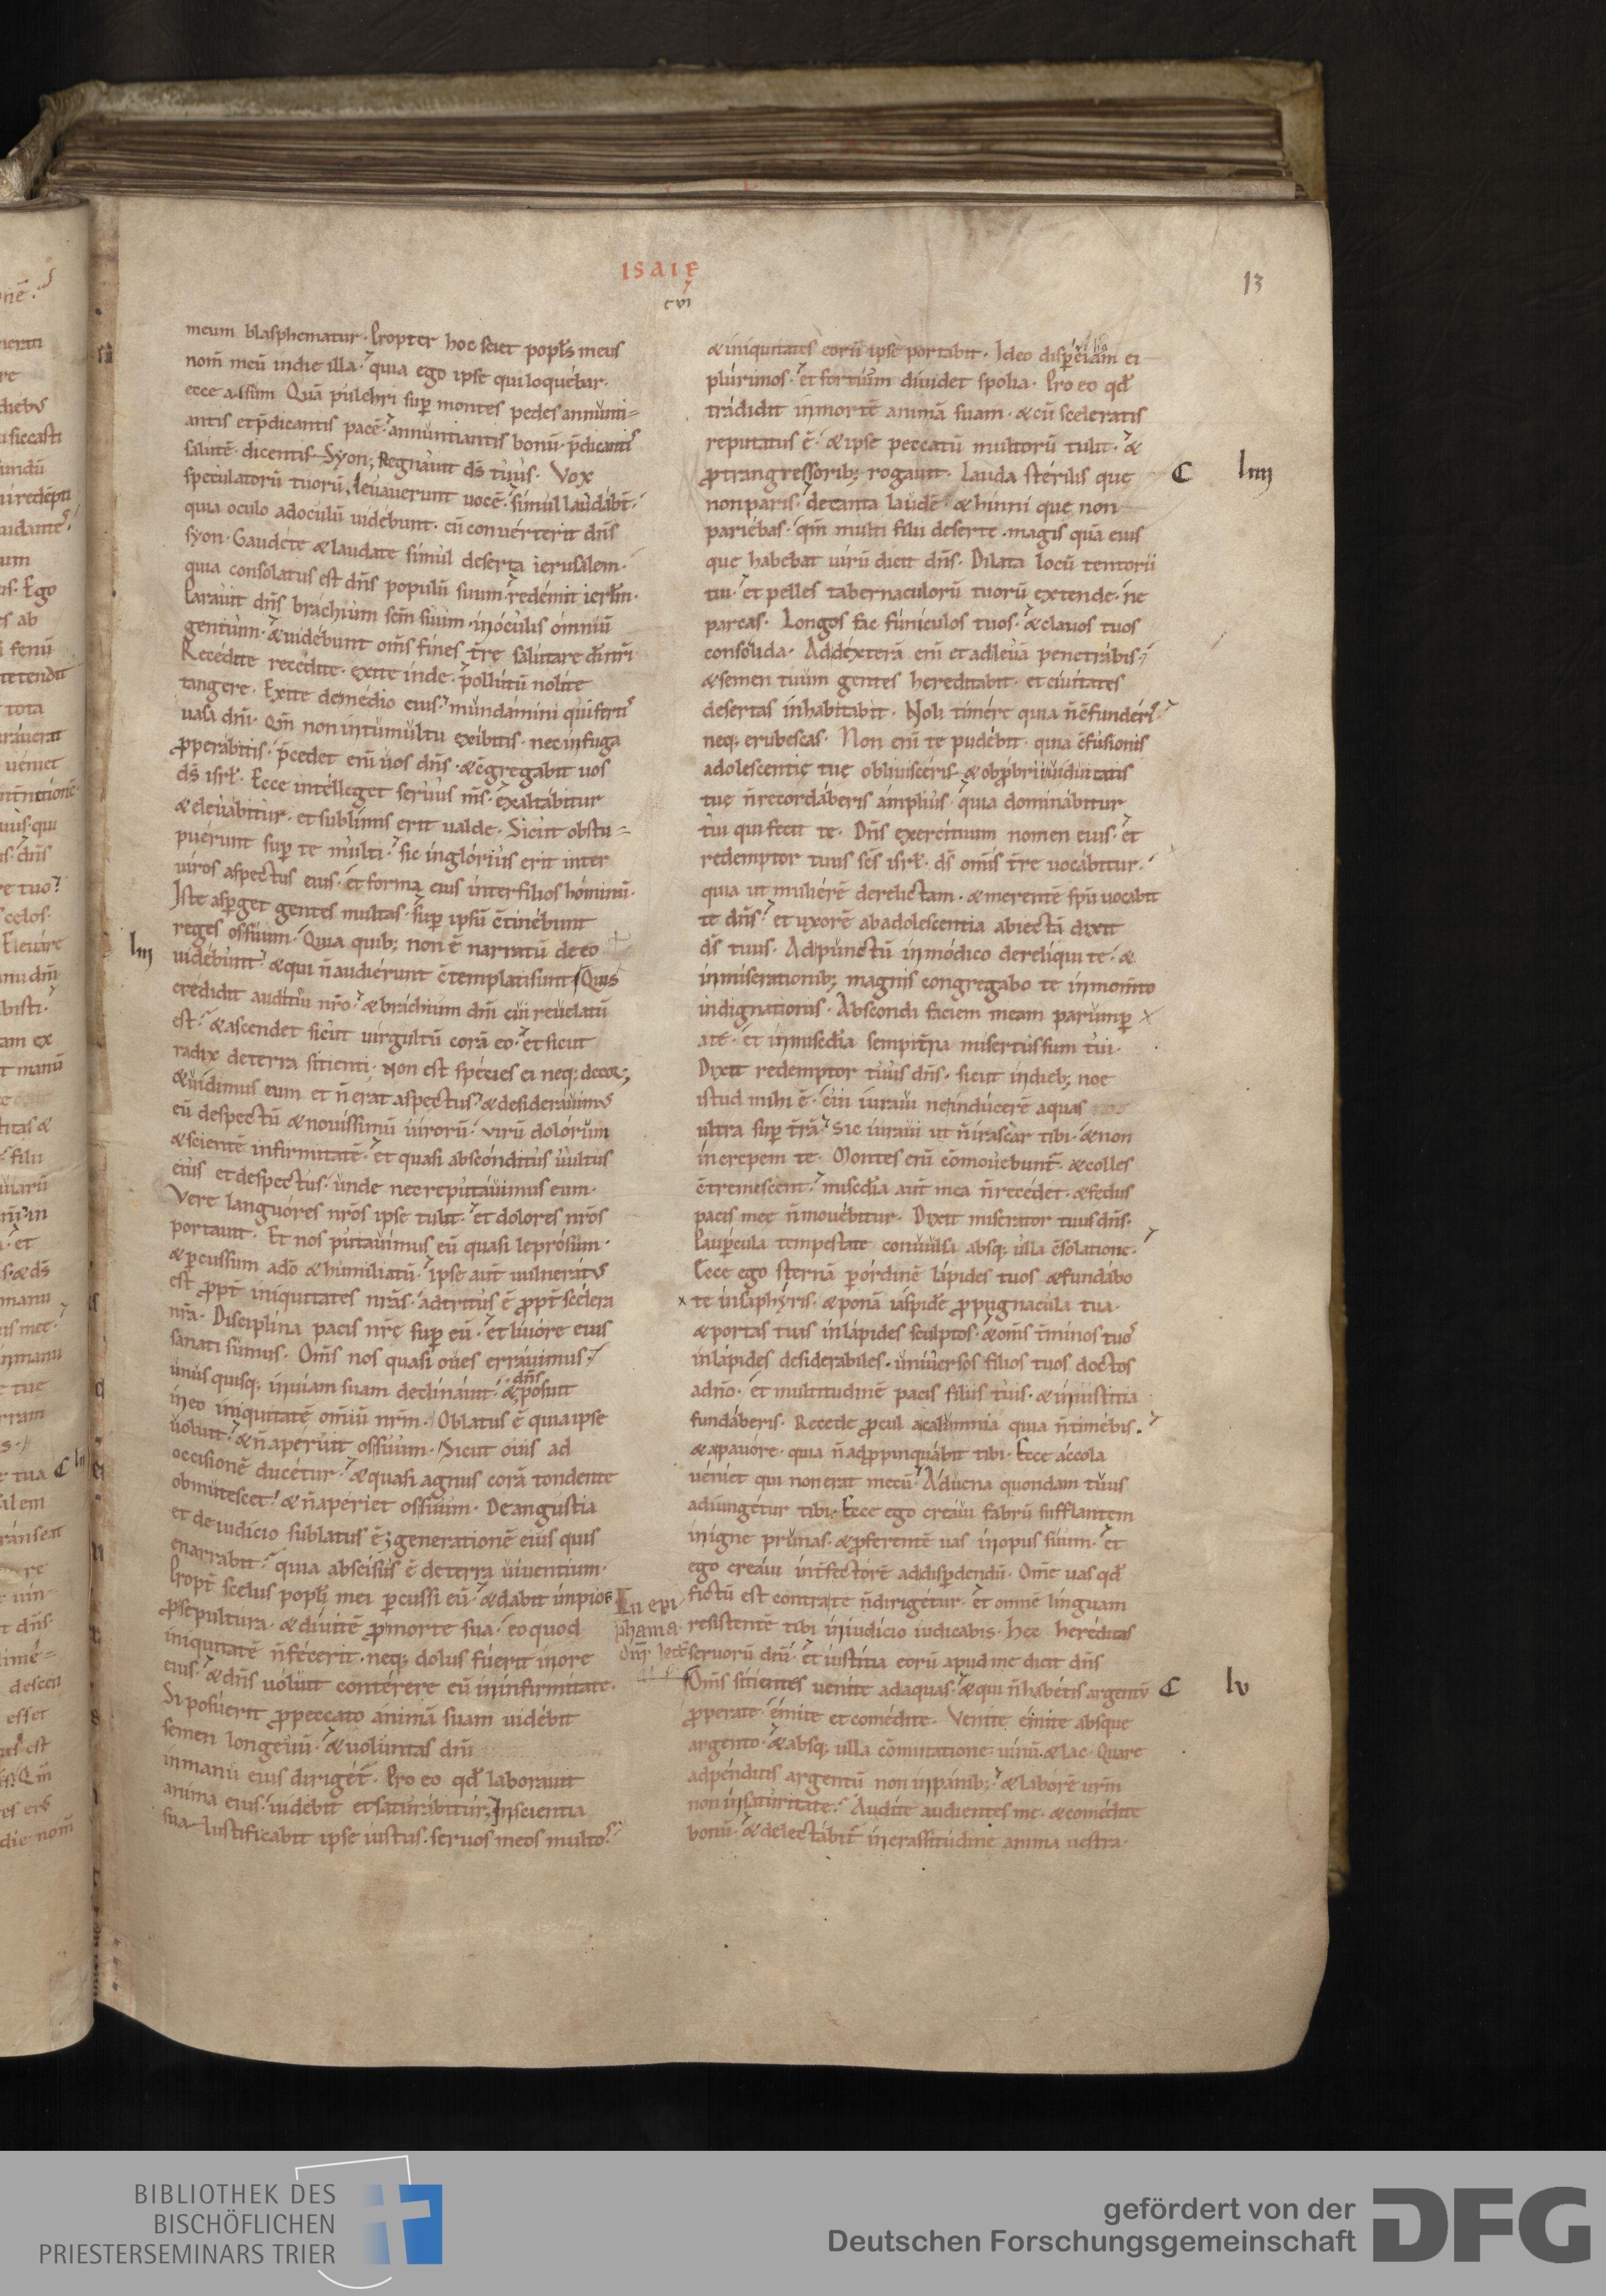 ISAIE
cvi
13
meum blasphematur. Propter hoc sciet popłs meus
nom̄ meū indie illa. quia ego ipse qui loquebar.
ecce assum Quā pulchri sup montes pedes annunti=
antis et p̄dicantis pacē. annuntiantis bonū. p̄dicantis
salutē. dicentis Syon; Regnauit ds̄ tuus. Vox
speculatorū tuorū, leuauerunt uocē. simul laudabt̄.
quia oculo adoculū uidebunt. cū conuerterit dn̄s
syon. Gaudete & laudate simul deserta ierusalem.
quia consolatus est dn̄s populū suum. redemit ierłm.
Parauit dn̄s brachium scm̄ suum. inoculis omniū
gentium. & uidebunt om̄s fines tr̄e salutare dī nr̄i
Recedite recedite. exite inde. pollutū nolite
tangere. Exite demedio eius. mundamini qui fertis
uasa dn̄i. Qm̄ non intumultu exibitis. nec infuga
ꝓperabitis. p̄cedet enī uos dn̄s. & c̄gregabit uos
ds̄ isrł. Ecce intelleget seruus m̄s. exaltabitur
& eleuabitur. et sublimis erit ualde. Sicut obstu=
puerunt sup te multi. sic inglorius erit inter
uiros aspectus eius. et forma eius inter filios hominū.
Iste asperget gentes multas. sup ipsū c̄tinebunt
reges os suum. Quia quib; non ē narratū de eo
liii
uidebunt. & qui n̄ audierunt c̄templati sunt Quis
credidit auditui nr̄o. & brachium dn̄i cui reuelatū
est. & ascendet sicut uirgultū corā eo. et sicut
radix deterra sitienti. Non est species ei neq; decor;
& uidimus eum et n̄ erat aspectus. & desiderauimus
eū despectū & nouissimū uirorū. uirū dolorum
& scientē infirmitatē. et quasi absconditus uultus
eius et despectus. unde nec reputauimus eum.
Vere languores nr̄os ipse tulit. et dolores nr̄os
portauit. Et nos putauimus eū quasi leprosum.
& pcussum adō & humiliatū. ipse aut̄ uulneratus
est ꝓpt̄ iniquitates nr̄as. adtritus ē ꝓpt̄ scelera
nr̄a. Disciplina pacis nr̄e sup eū. et liuore eius
sanati sumus. Om̄s nos quasi oues errauimus.
unus quisq; inuiam suam declinauit. & posuit
dn̄s
in eo iniquitatē om̄iū nr̄m. Oblatus ē quia ipse
uoluit. & n̄ aperuit os suum. Sicut ouis ad
occisionē ducetur. & quasi agnus corā tondente
obmutescet. & n̄ aperiet os suum. De angustia
et de iudicio sublatus ē; generationē eius quis
enarrabit. quia abscisus ē deterra uiuentium.
Propt̄ scelus popłi mei pcussi eū. & dabit impios
ꝓ sepultura. & diuitē ꝓ morte sua. eo quod
iniquitatē n̄ fecerit. neq; dolus fuerit in ore
eius. & dn̄s uoluit conterere eū in infirmitate.
Si posuerit ꝓ peccato animā suam uidebit
semen longeuū. & uoluntas dn̄i
inmanu eius diriget̄. Pro eo qd̄ laborauit
anima eius. uidebit et saturabitur, Inscientia
sua Iustificabit ipse iustus. seruos meos multos.
& iniquitates eorū ipse portabit. Ideo dispciam ei
plurimos. et fortium diuidet spolia. Pro eo qd̄
tradidit inmortē animā suam. & cū sceleratis
reputatus ē. & ipse peccatū multorū tulit. &
ꝓ trangressorib; rogauit. Lauda sterilis que
C liiii
non paris. decanta laudē. & hinni que non
pariebas. qm̄ multi filii deserte. magis quā eius
que habebat uirū dicit dn̄s. Dilata locū tentorii
tui. et pelles tabernaculorū tuorū extende. ne
parcas. Longos fac funiculos tuos. & clauos tuos
consolida. Addexterā enī et adleua penetrabis.
& semen tuum gentes hereditabit. et ciuitates
desertas inhabitabit. Noli timere quia n̄ c̄funderis.
neq; erubescas. Non enī te pudebit. quia c̄fusionis
adolescentie tue obliuisceris & obprbrii uiduitatis
tue n̄ recordaberis amplius. quia dominabitur
tui qui fecit te. Dn̄s exercituum nomen eius. et
redemptor tuus scs̄ isrł. ds̄ om̄is tr̄e uocabitur.
quia ut mulierē derelictam. & merentē spū uocabit
te dn̄s. et uxorē ab adolescentia abiectā dixit
ds̄ tuus. Ad punctū in modico dereliqui te. &
in miserationib; magnis congregabo te in mom̄to
indignationis. Abscondi faciem meam parump
a te. et in misedia sempit̄na misertus sum tui.
Dixit redemptor tuus dn̄s. sicut indieb; noe
istud mihi ē. cui iuraui ne inducerē aquas
ultra sup t̄rā. Sic iuraui ut n̄ irascar tibi. & non
increpem te. Montes enī cōmouebunt̄. & colles
c̄tremiscent. misedia aut̄ mea n̄ recedet. & fedus
pacis mee n̄ mouebitur. Dixit miserator tuus dn̄s.
Paupcula tempestate conuulsa absq; ulla c̄solatione.
Ecce ego sternā p ordinē lapides tuos & fundabo
x te insaphyris. & ponā iaspidē ꝓpugnacula tua.
& portas tuas inlapides sculptos. & om̄s t̄minos tuos
inlapides desiderabiles. uniuersos filios tuos doctos
adn̄o. et multitudinē pacis filiis tuis. & iniustitia
fundaberis. Recede ꝓcul a calumnia quia n̄ timebis.
& apauore. quia n̄ adpropinquabit tibi. Ecce accola
ueniet qui non erat mecū. Aduena quondam tuus
adiungetur tibi. Ecce ego creaui fabrū sufflantem
inigne prunas. & ꝓferentē uas in opus suum. et
ego creaui int̄fectorē addispdendū. Om̄e uas qd̄
fictū est contra te n̄ dirigetur. et omnē linguam
resistentē tibi iniudicio iudicabis. hec hereditas
seruorū dn̄i. et iustitia eorū apud me dicit dn̄s
In epi
phania
Om̄s sitientes uenite adaquas. & qui n̄ habetis argentū
C lv
ꝓperate. emite et comedite. Venite emite absque
argento. & absq; ulla cōmutatione uinū. & lac. Quare
adpenditis argentū non in panib;. & laborē ur̄m
non insaturitate. Audite audientes me. & comedite
bonū. & delectabit̄ incrassitudine anima uestra.
BIBLIOTHEK DES
BISCHÖFLICHEN
PRIESTERSEMINARS TRIER
gefördert von der
Deutschen Forschungsgemeinschaft
DFG